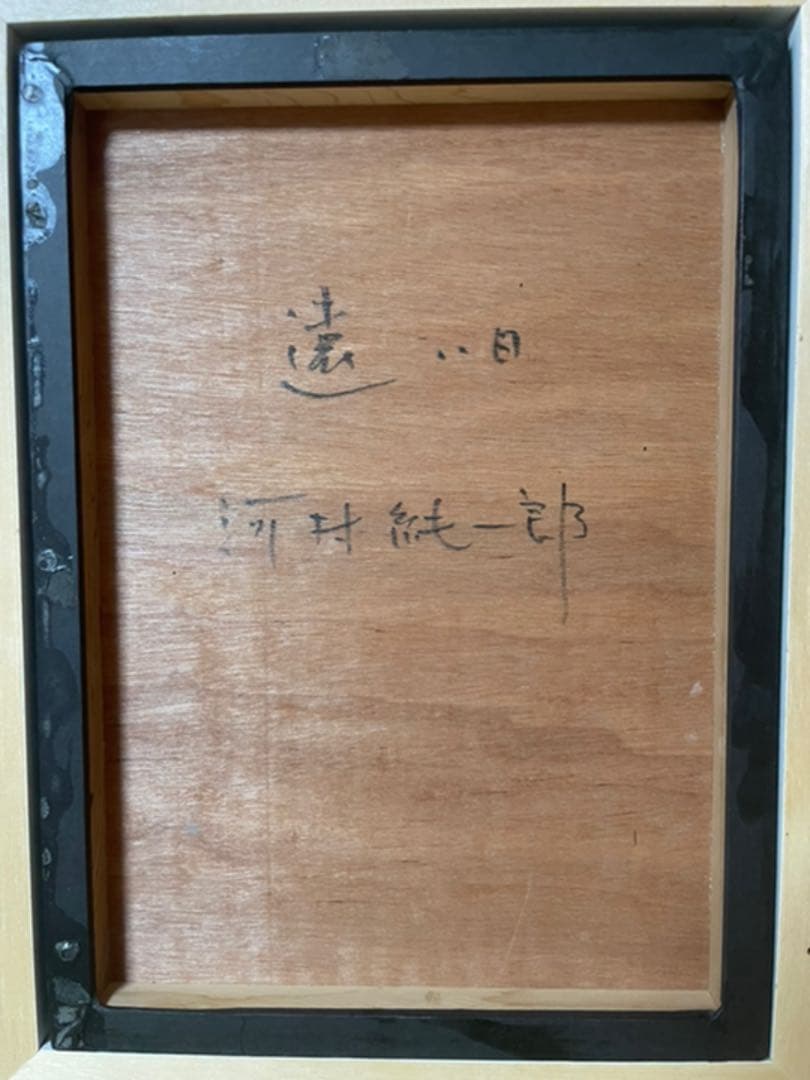 遠い日
河村純一郎